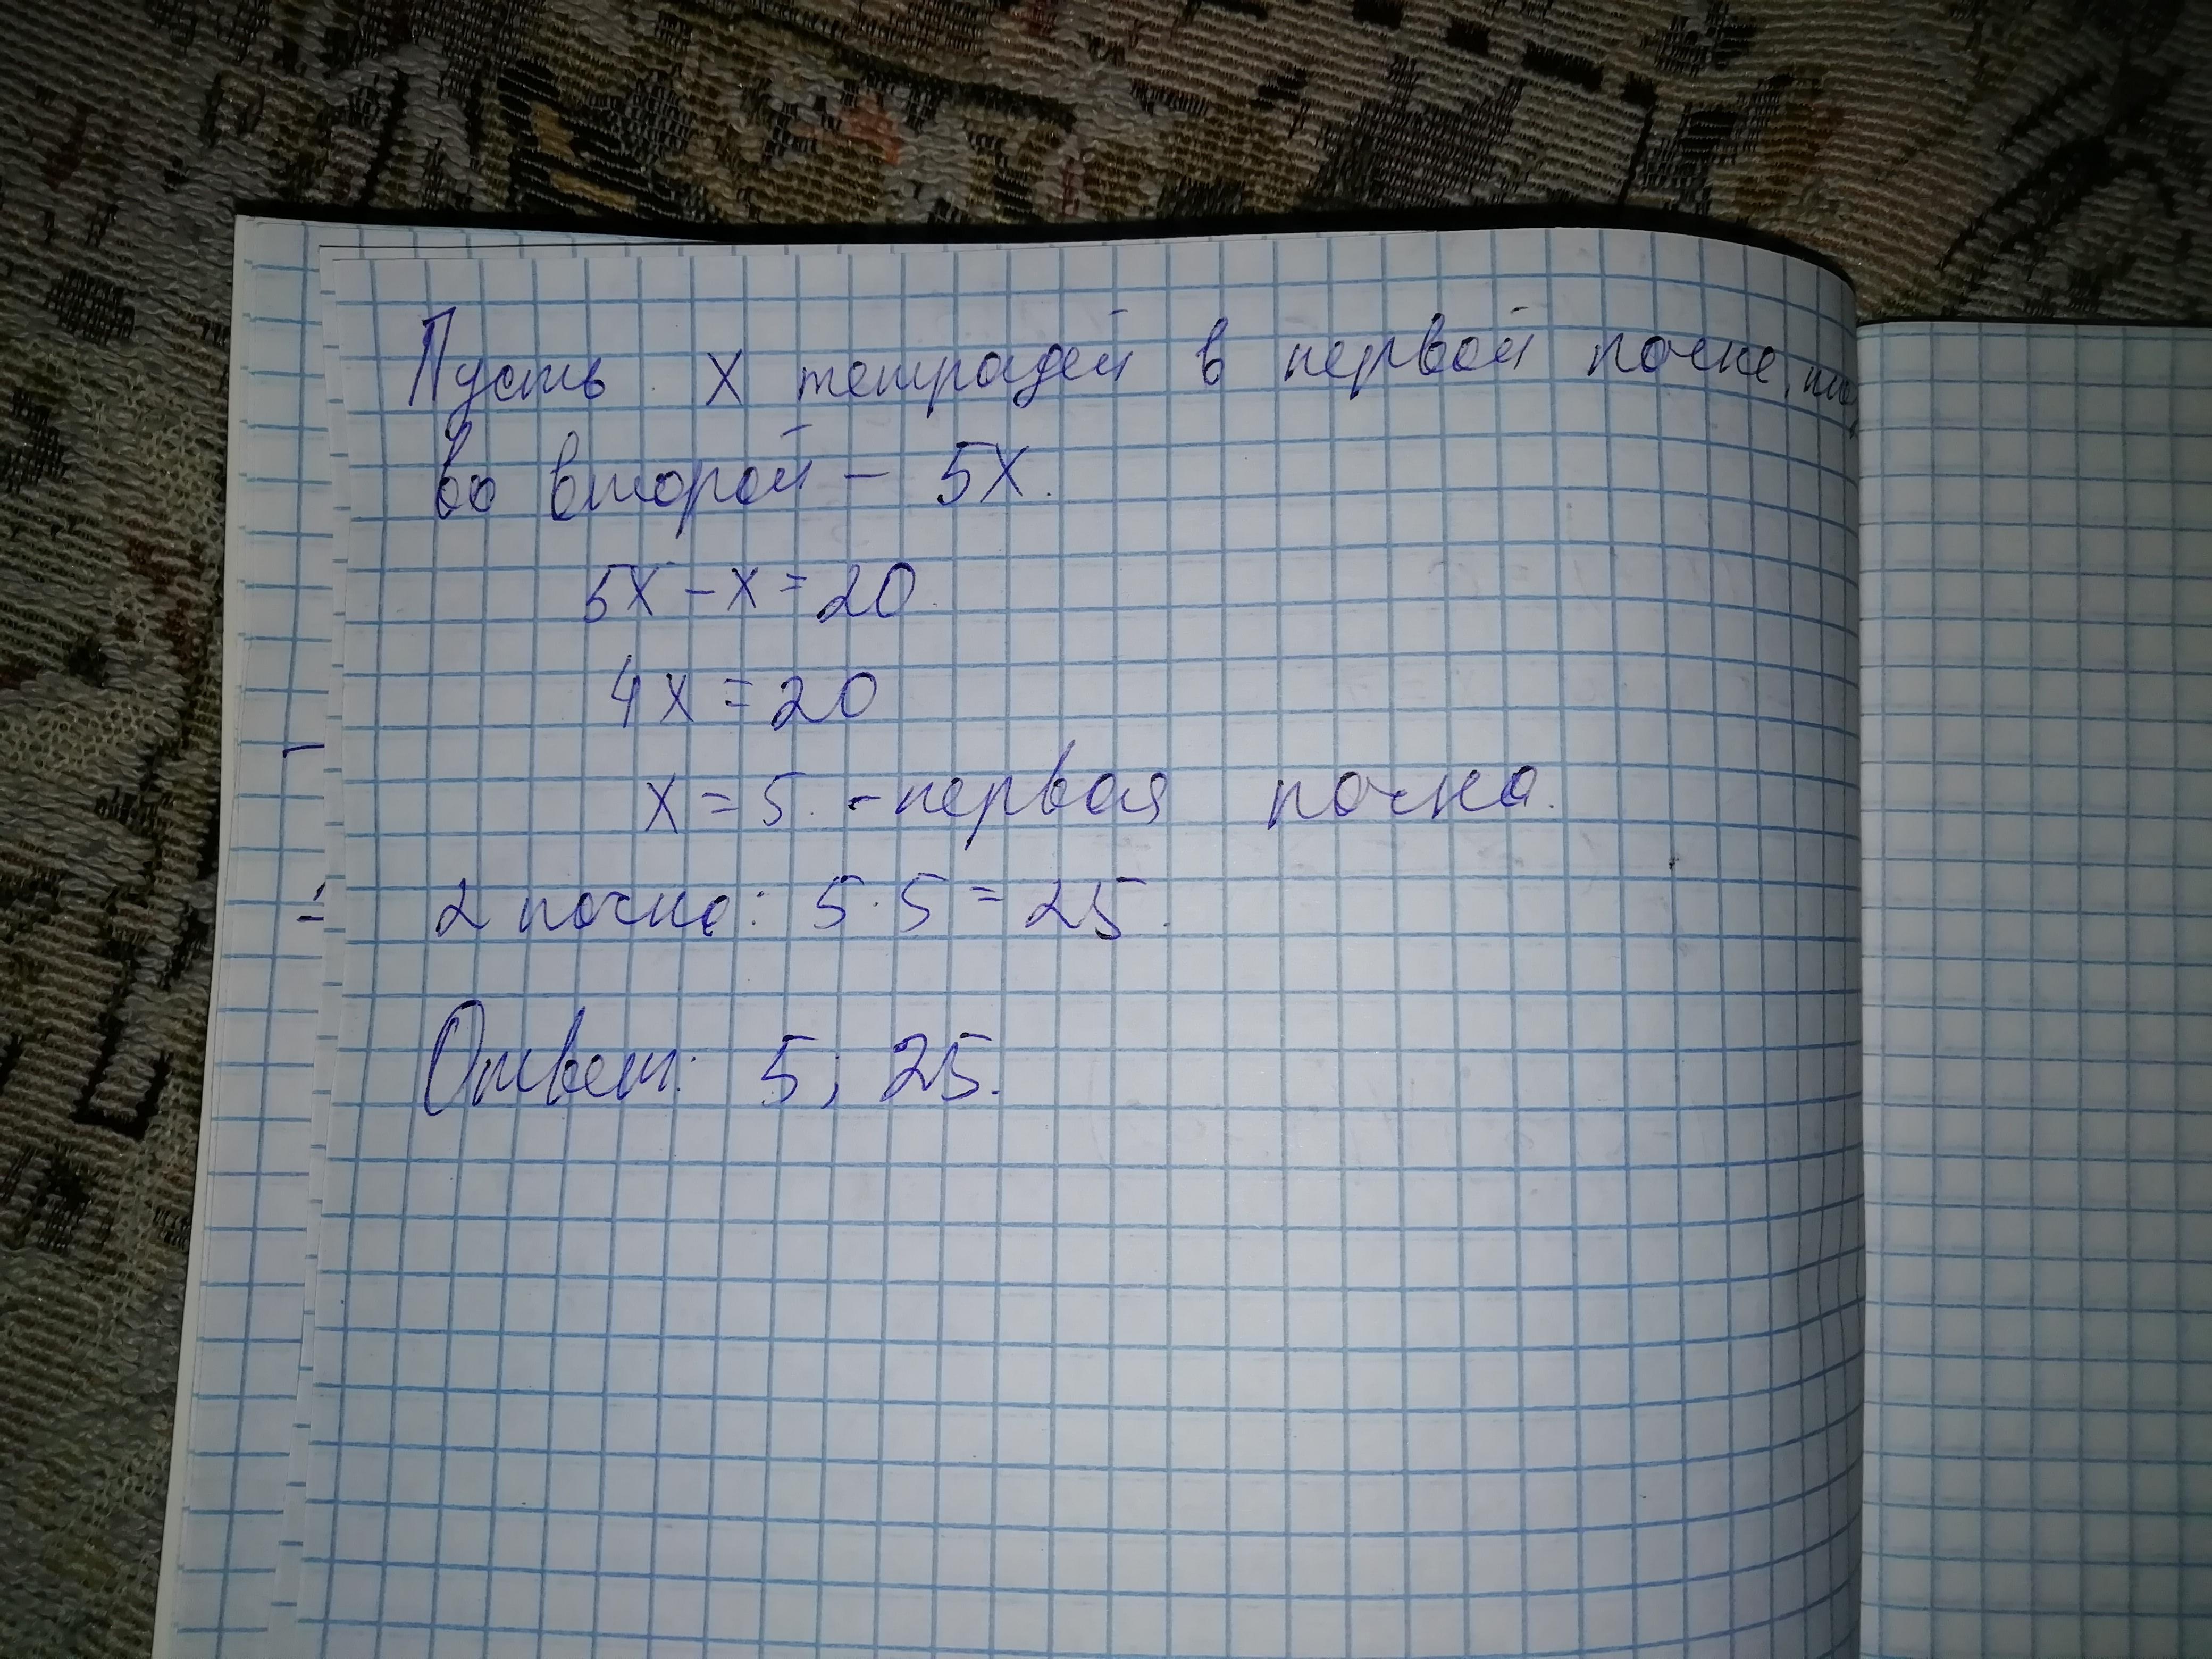 Пусть x тетрадей в первой пачке,
во второй - 5x.
5x - x = 20
4x = 20
x = 5. - первая пачка.
2 пачка: 5 · 5 = 25.
Ответ: 5; 25.